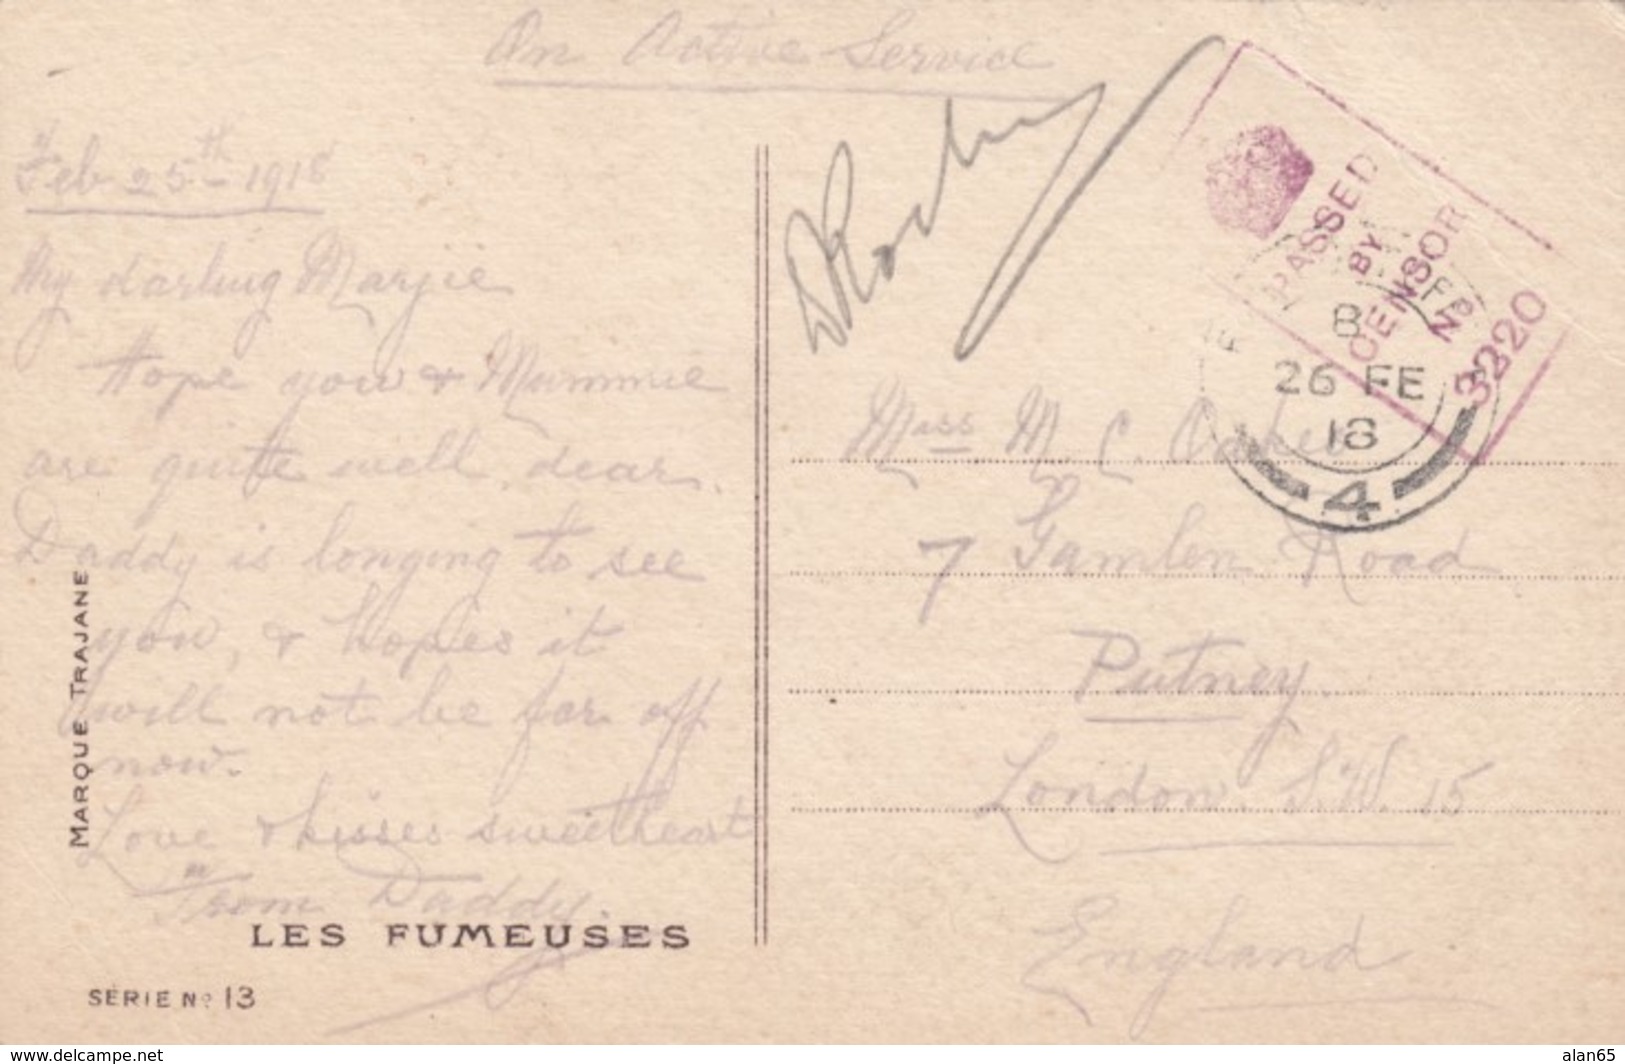 On Active Service
Feb 25th - 1918
My darling Marjie
Hope you & Mummie
are quite well, dear.
Daddy is longing to see
you, & hopes it
will not be far off
now.
Love & kisses sweetheart
From Daddy.
MARQUE TRAJANE
LES FUMEUSES
SÉRIE No 13
PASSED
BY
CENSOR
No 3220
8
26 FE
18
4
Miss M. C.
7 Gamlen Road
Putney.
London S.W. 15
England
www.delcampe.net
alan65